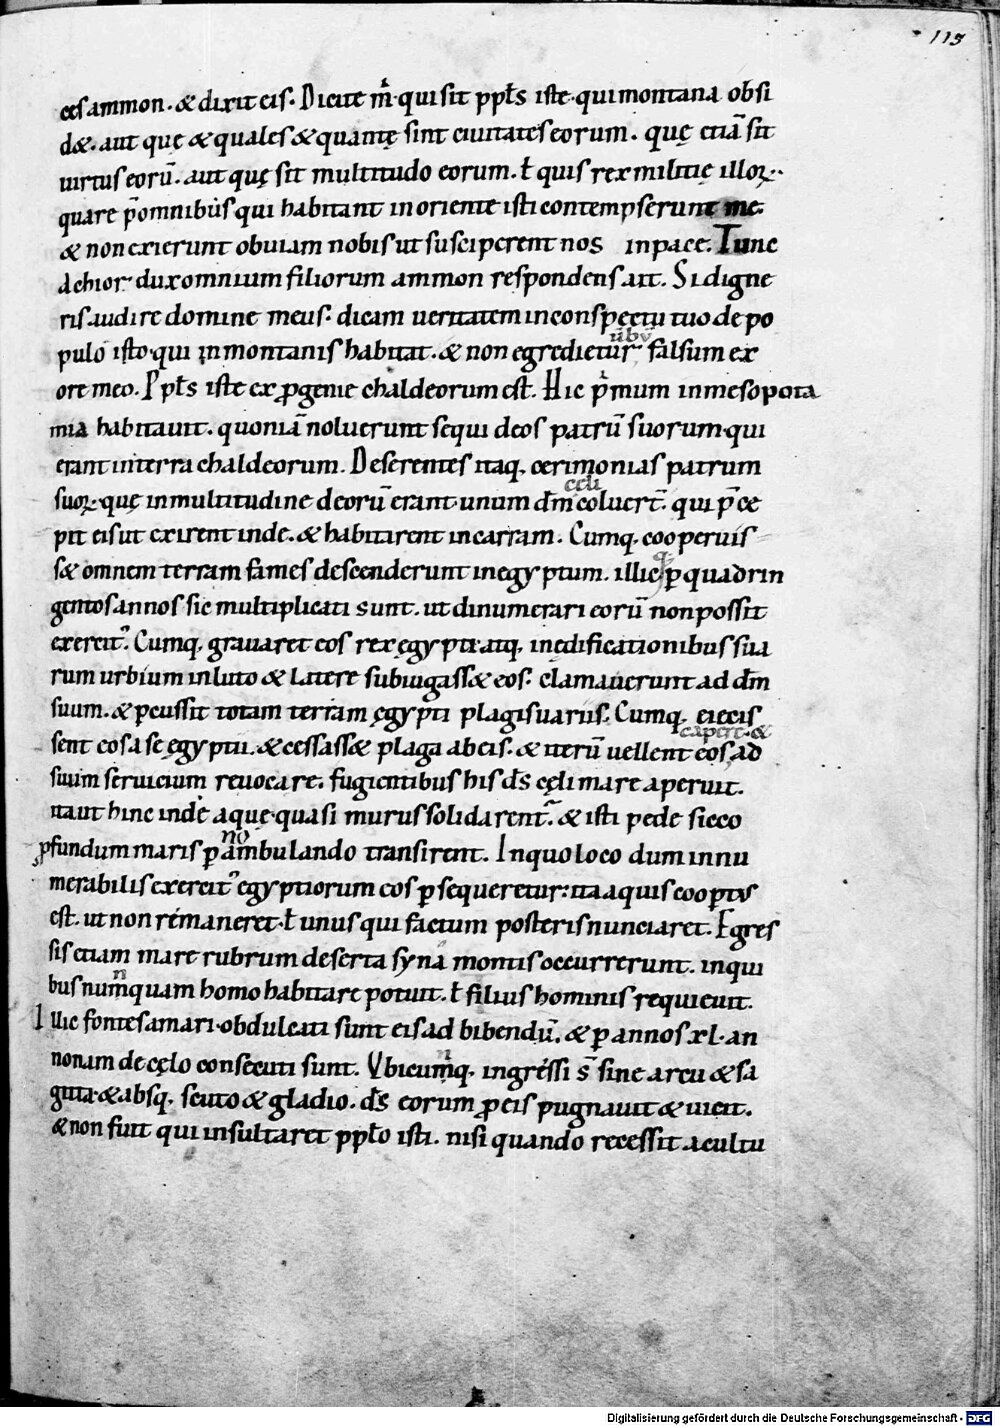 115
ces ammon. & dixit eis. Dicite m̅ qui sit ppl̅s iste. qui montana obsi
d&. aut quę & quales & quantę sint ciuitates eorum. quę etiā sit
uirtus eorū. aut quę sit multitudo eorum. ł quis rex militię illoꝝ.
quare p̅ omnibus qui habitant in oriente isti contempserunt me.
& non exierunt obuiam nobis ut susciperent nos in pace. Tunc
achior dux omnium filiorum ammon respondens ait. Si digne
ris audire domine meus. dicam ueritatem in conspectu tuo de po
ūbū
pulo isto qui in montanis habitat. & non egredietur falsum ex
ore meo. Ppl̅s iste ex ꝓgenie chaldeorum est. Hic p'mum in mesopota
mia habitauit. quoniā noluerunt sequi deos patrū suorum. qui
erant in terra chaldeorum. Deserentes itaq. cerimonias patrum
cęli
suoꝝ. quę in multitudine deorū erant. unum dm̅ coluert̅. qui p̅ce
pit eis ut exirent inde. & habitarent in carram. Cumq. cooperuis
s& omnem terram fames descenderunt in egyptum. illicq; ꝑ quadrin
gentos annos sic multiplicati sunt. ut dinumerari eorū non possit
exercit'. Cumq. grauaret eos rex ęgypti. atq. in ędificationibus sua
rum urbium in luto & latere subiugass& eos. clamauerunt ad dm̅
suum. & ꝑcussit totam terram ęgypti plagis uariis. Cumq. eiecis
capere. &
sent eos a se ęgyptii. & cessass& plaga ab eis. & iterū uellent eos ad
suum seruicium reuocare. fugientibus his ds̅ cęli mare aperuit.
ita ut hinc inde aquę quasi murus solidarent̅. & isti pede sicco
no
ꝓfundum maris ꝑambulando transirent. In quo loco dum innu
merabilis exercit' egyptiorum eos ꝑsequeretur. ita aquis cooꝑtus
est. ut non rémaneret ł unus qui factum posteris nunciaret. Egres
sis etiam mare rubrum deserta syna montis occurrerunt. in qui
n
bus numquam homo habitare potuit. ł filius hominis requieuit.
Illic fontes amari obdulcati sunt eis ad bibendū. & ꝑ annos xl. an
n
nonam de cęlo consecuti sunt. Vbicumq. ingréssi s̅ sine arcu & sa
gitta. & absq. scuto & gladio. ds̅ eorum ꝓ eis pugnauit & uicit.
& non fuit qui insultaret ppł̅o isti. nisi quando recessit a cultu
Digitalisierung gefördert durch die Deutsche Forschungsgemeinschaft - DFG